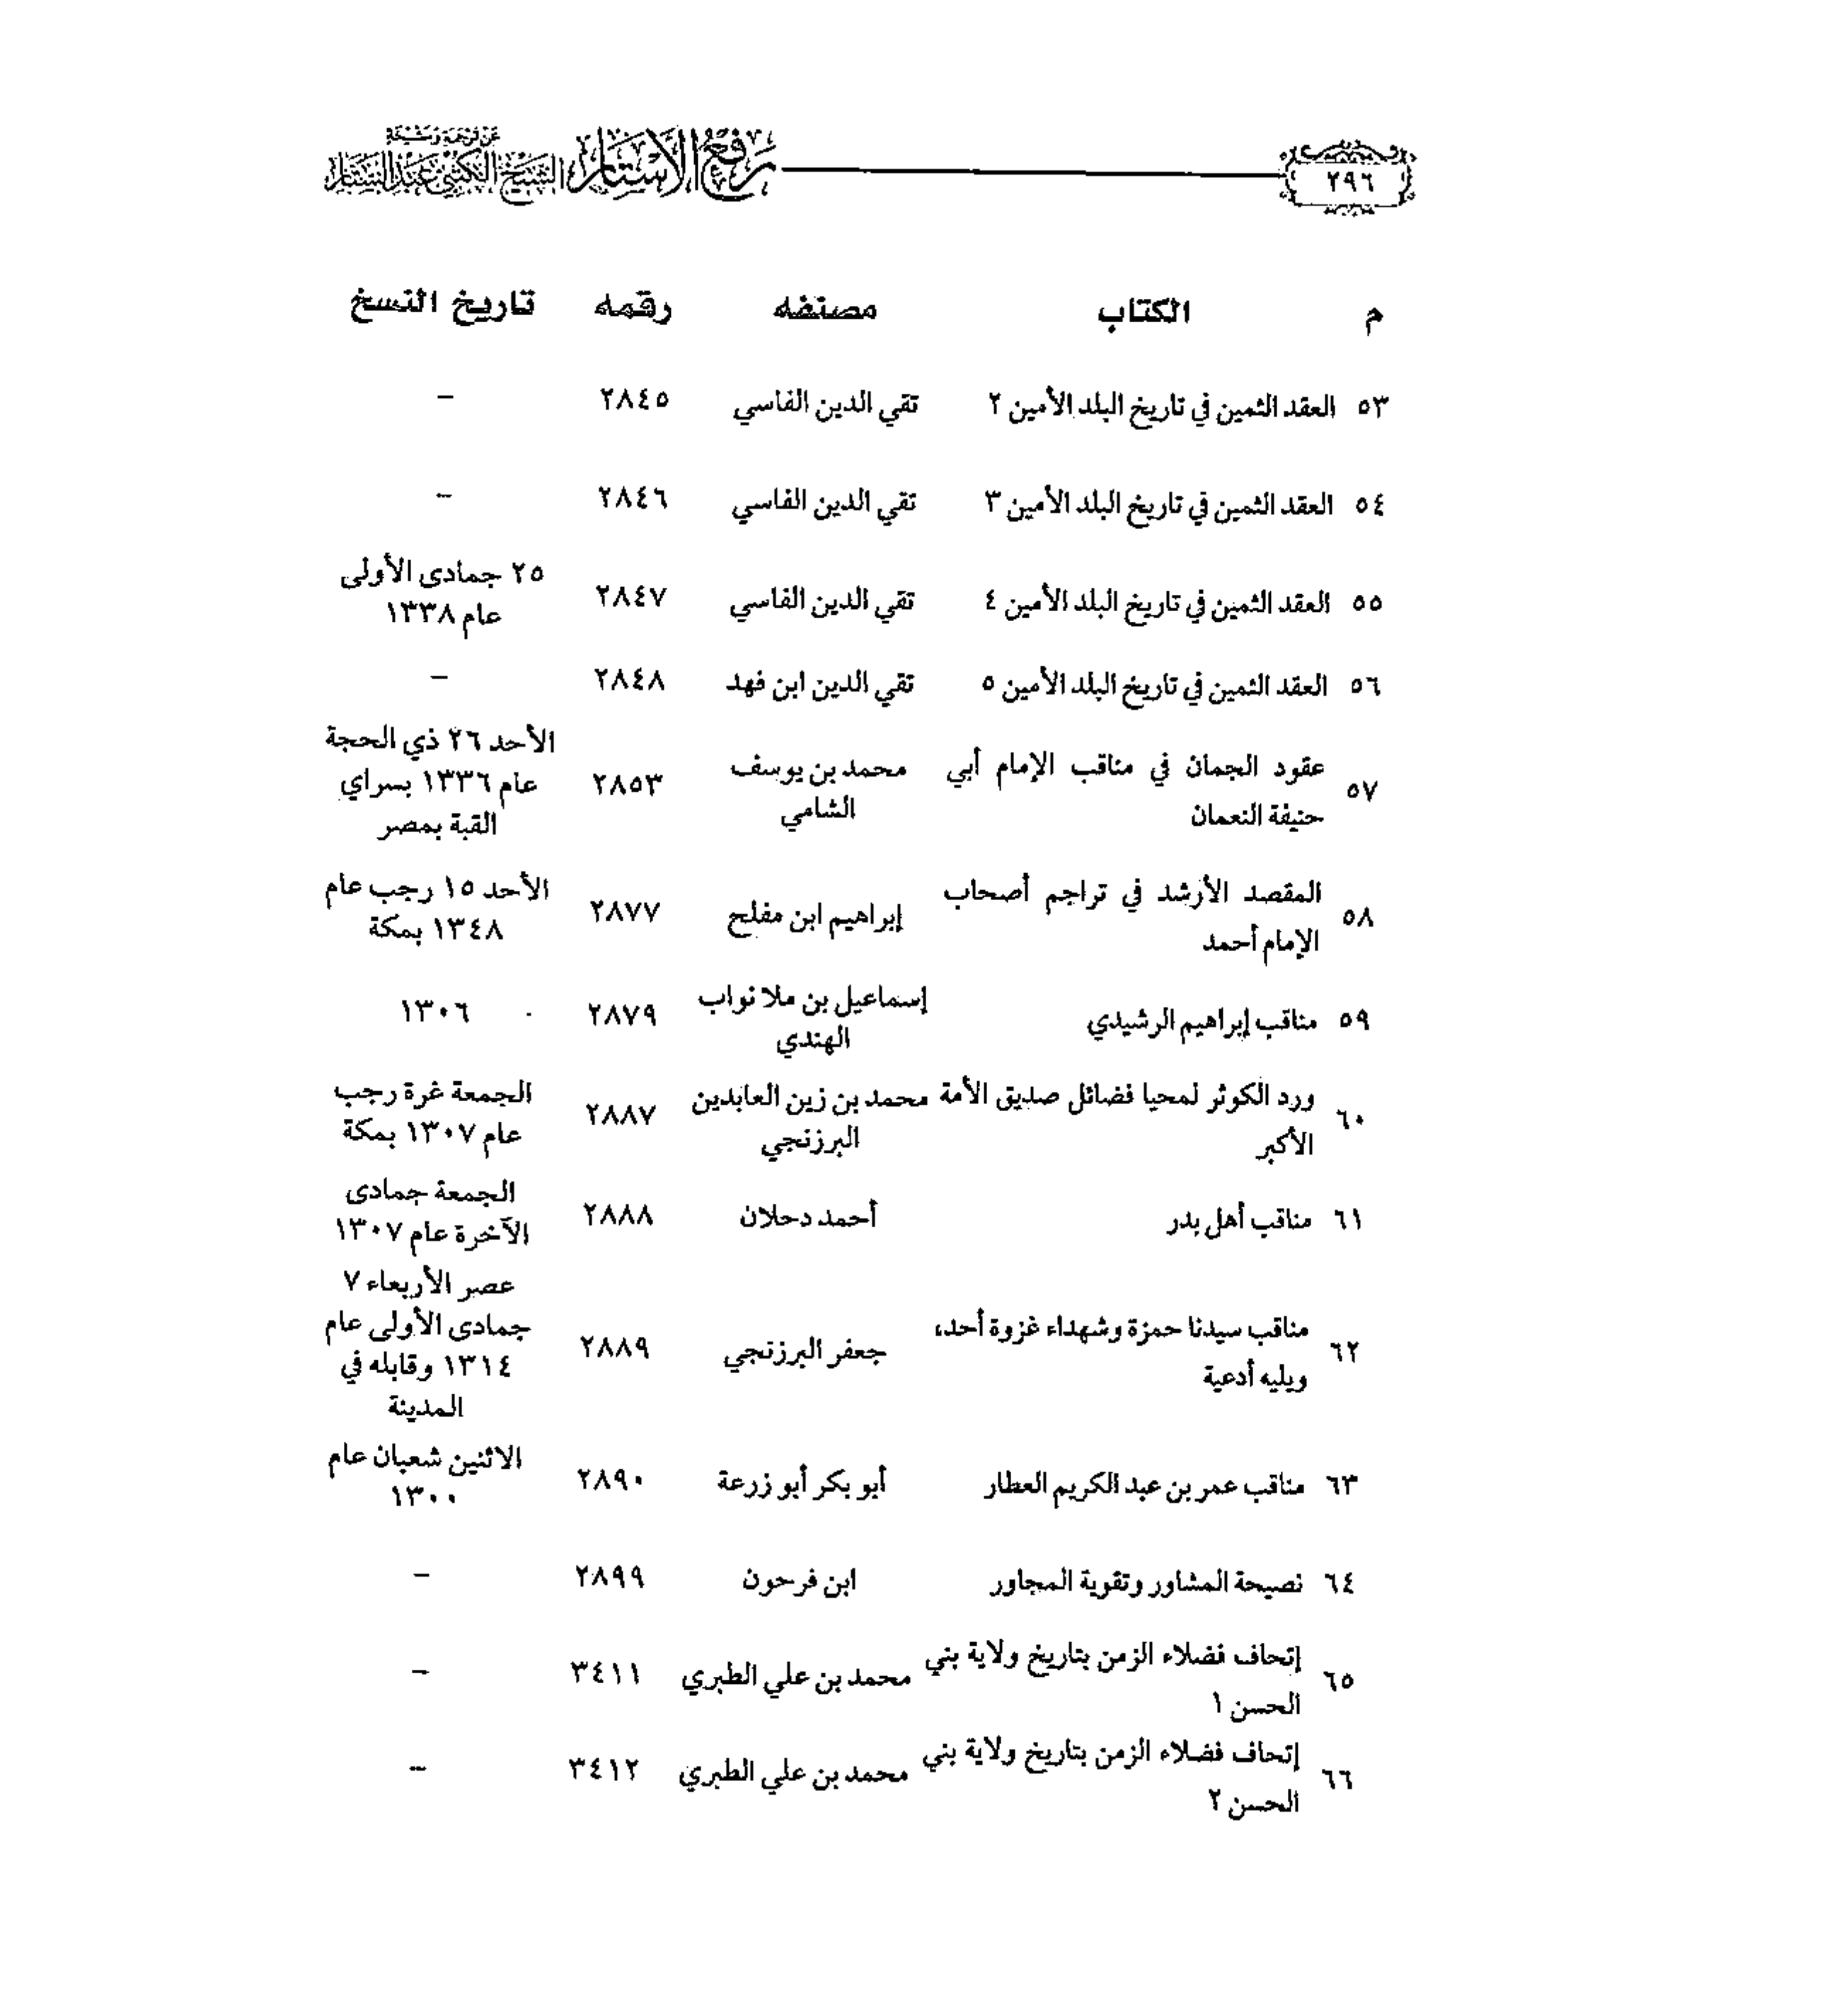 ٢٩٦
رفع الأستار عن ترجمة ومشيخة الشيخ الكتبي عبد الستار
م الكتاب مصنفه رقمه تاريخ النسخ
٥٣ العقد الثمين في تاريخ البلد الأمين ٢ تقي الدين الفاسي ٢٨٤٥ –
٥٤ العقد الثمين في تاريخ البلد الأمين ٣ تقي الدين الفاسي ٢٨٤٦ –
٥٥ العقد الثمين في تاريخ البلد الأمين ٤ تقي الدين الفاسي ٢٨٤٧ ٢٥ جمادى الأولى
عام ١٣٣٨
٥٦ العقد الثمين في تاريخ البلد الأمين ٥ تقي الدين ابن فهد ٢٨٤٨ –
٥٧ عقود الجمان في مناقب الإمام أبي
حنيفة النعمان
محمد بن يوسف
الشامي
٢٨٥٣
الأحد ٢٦ ذي الحجة
عام ١٣٣٦ بسراي
القبة بمصر
٥٨ المقصد الأرشد في تراجم أصحاب
الإمام أحمد
إبراهيم ابن مفلح
٢٨٧٧
الأحد ١٥ رجب عام
١٣٤٨ بمكة
٥٩ مناقب إبراهيم الرشيدي
إسماعيل بن ملا نواب
الهندي
٢٨٧٩
١٣٠٦
٦٠ ورد الكوثر لمحيا فضائل صديق الأمة
الأكبر
محمد بن زين العابدين
البرزنجي
٢٨٨٧
الجمعة غرة رجب
عام ١٣٠٧ بمكة
٦١ مناقب أهل بدر
أحمد دحلان
٢٨٨٨
الجمعة جمادى
الآخرة عام ١٣٠٧
٦٢ مناقب سيدنا حمزة وشهداء غزوة أحد،
ويليه أدعية
جعفر البرزنجي
٢٨٨٩
عصر الأربعاء ٧
جمادى الأولى عام
١٣١٤ وقابله في
المدينة
٦٣ مناقب عمر بن عبد الكريم العطار
أبو بكر أبو زرعة
٢٨٩٠
الاثنين شعبان عام
١٣٠٠
٦٤ نصيحة المشاور وتقوية المجاور ابن فرحون ٢٨٩٩ –
٦٥ إتحاف فضلاء الزمن بتاريخ ولاية بني
الحسن ١
محمد بن علي الطبري
٣٤١١
–
٦٦ إتحاف فضلاء الزمن بتاريخ ولاية بني
الحسن ٢
محمد بن علي الطبري
٣٤١٢
–